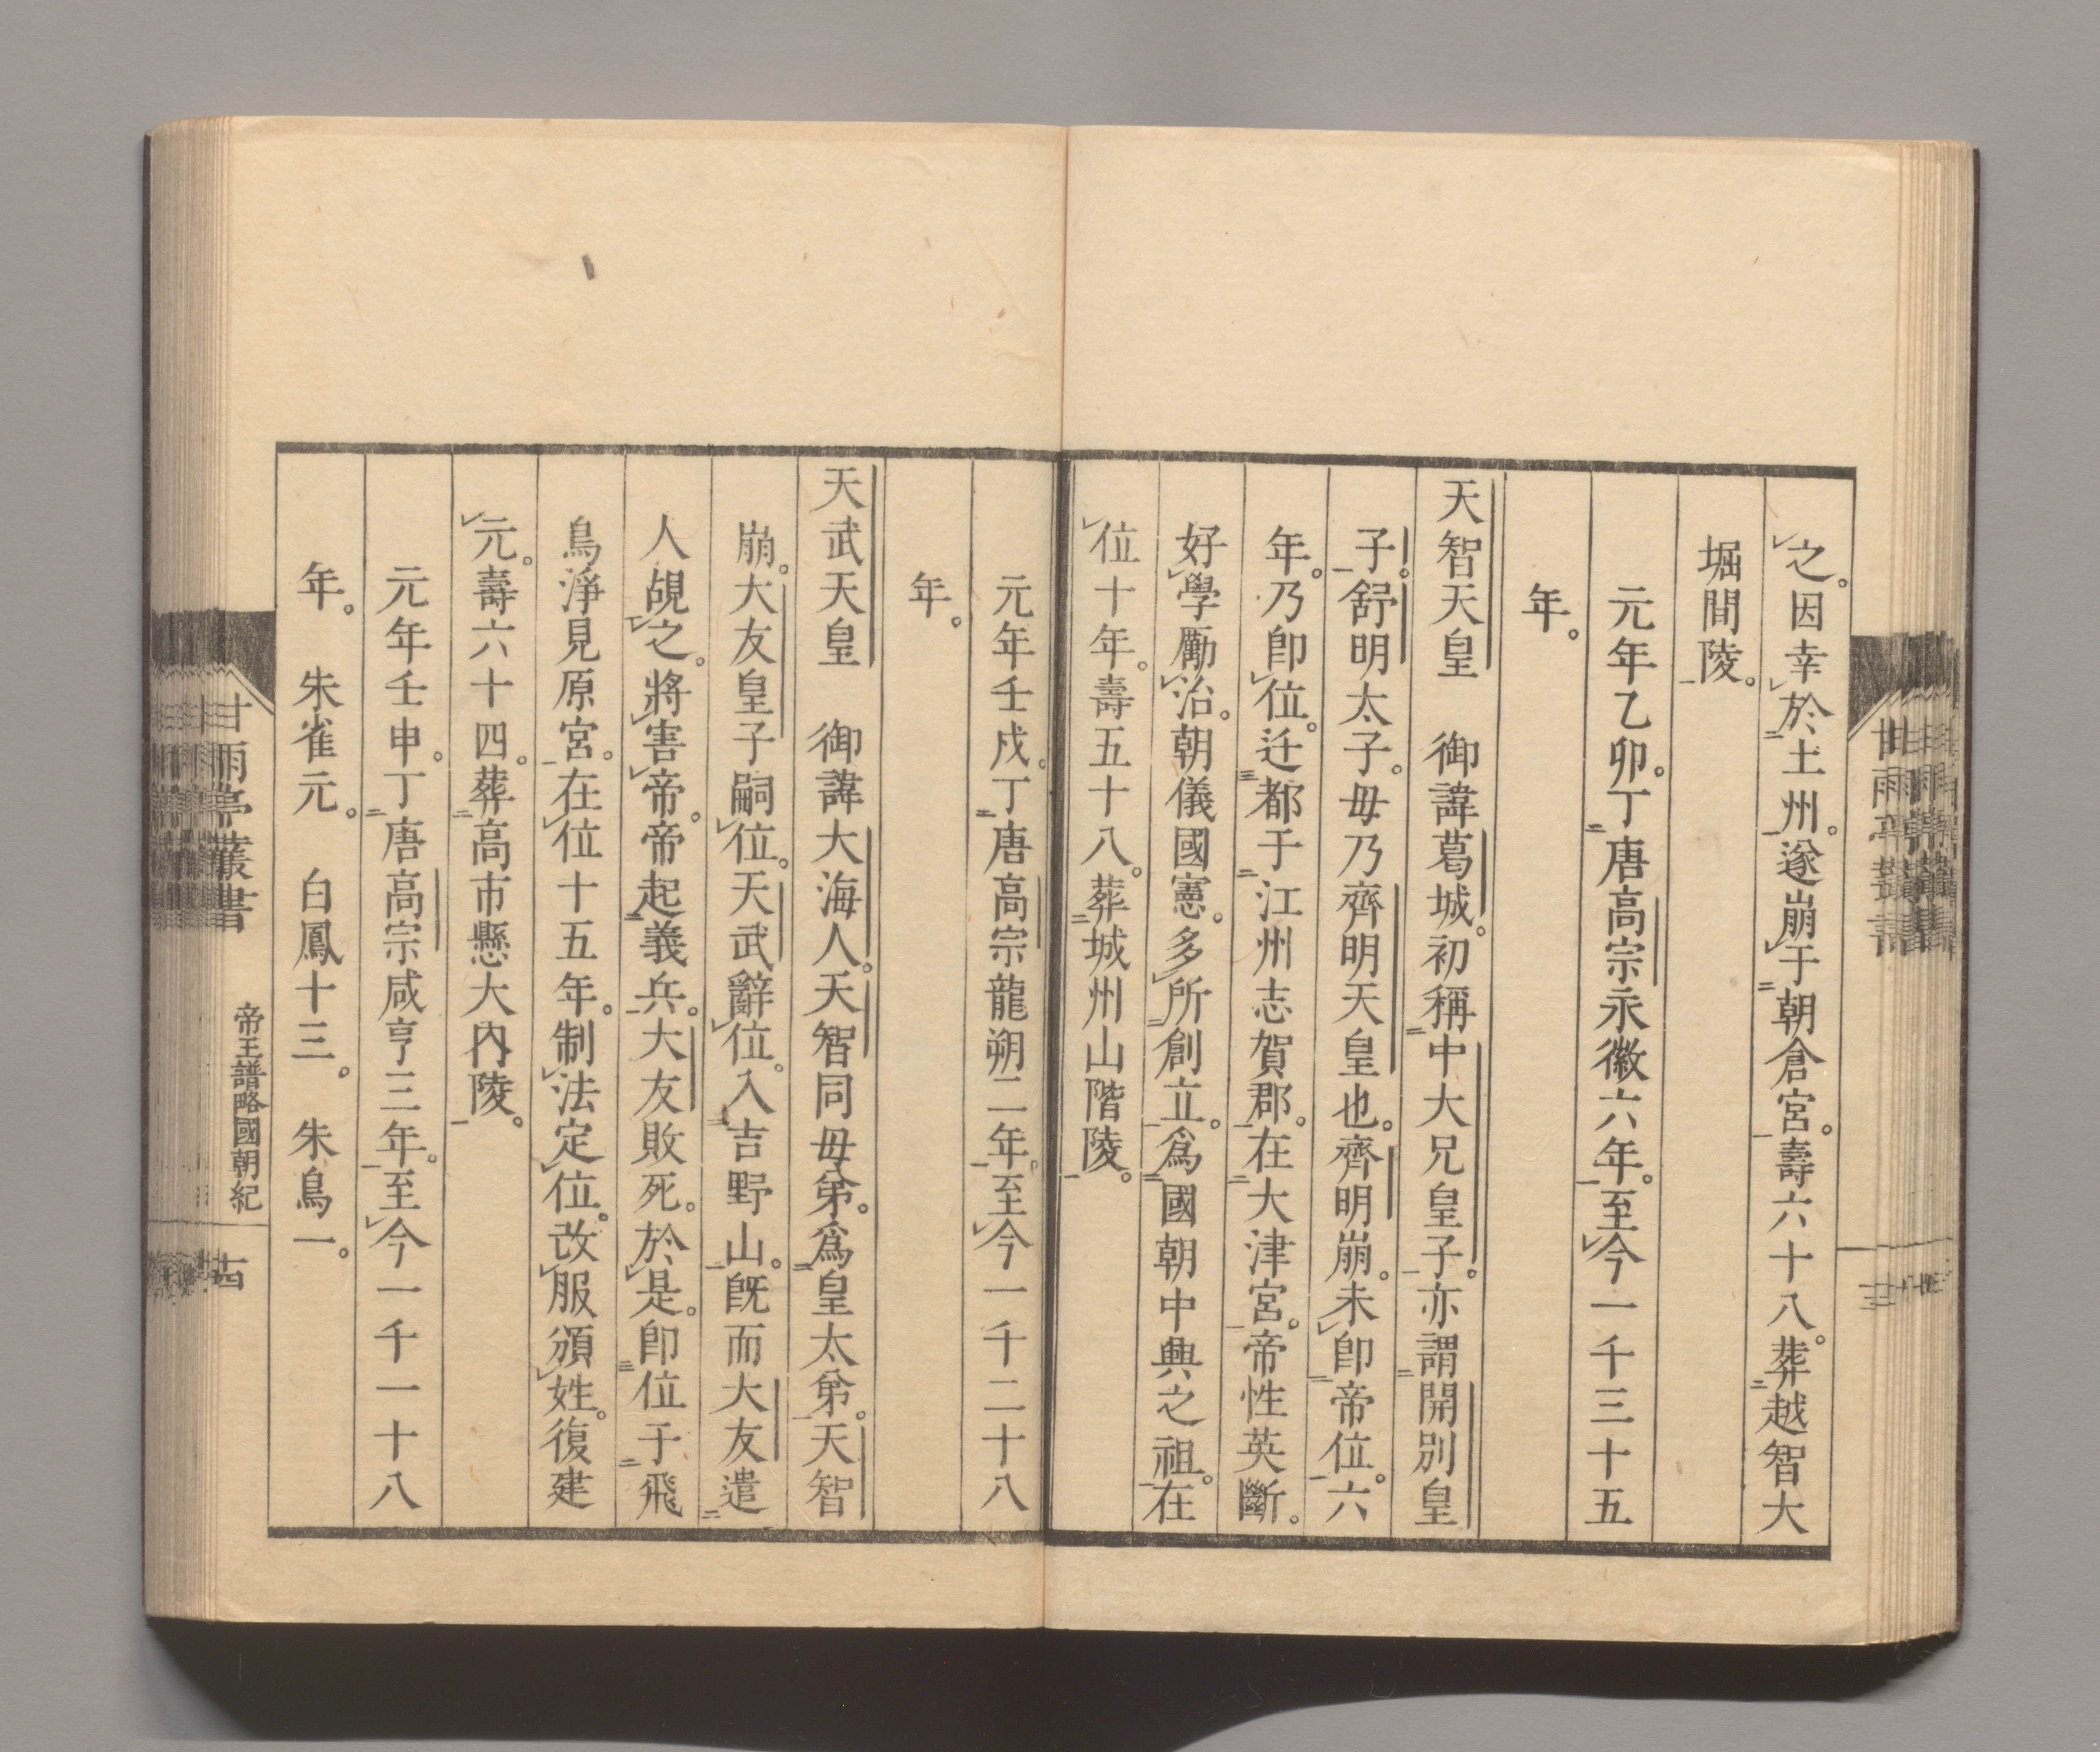 之。因幸於土州。遂崩于朝倉宮。壽六十八。葬越智大
堀間陵。
元年乙卯。丁唐高宗永徽六年。至今一千三十五
年。
天智天皇　御諱葛城。初稱中大兄皇子。亦謂開別皇
子。舒明太子。母乃齊明天皇也。齊明崩。未卽帝位。六
年。乃卽位。迁都于江州志賀郡。在大津宮。帝性英斷。
好學勵治。朝儀國憲。多所創立。爲國朝中興之祖。在
位十年。壽五十八。葬城州山階陵。
元年壬戍。丁唐高宗龍朔二年。至今一千二十八
年。
天武天皇　御諱大海人。天智同母弟。爲皇太弟。天智
崩。大友皇子嗣位。天武辭位。入吉野山。旣而大友遣
人覘之。將害帝。帝起義兵。大友敗死。於是。卽位于飛
鳥淨見原宮。在位十五年。制法定位。改服頒姓。復建
元。壽六十四。葬高市懸大內陵。
元年壬申。丁唐高宗咸亨三年。至今一千一十八
年。　朱雀元。　白鳳十三。　朱鳥一。
甘雨亭叢書　帝王譜略國朝紀　十四